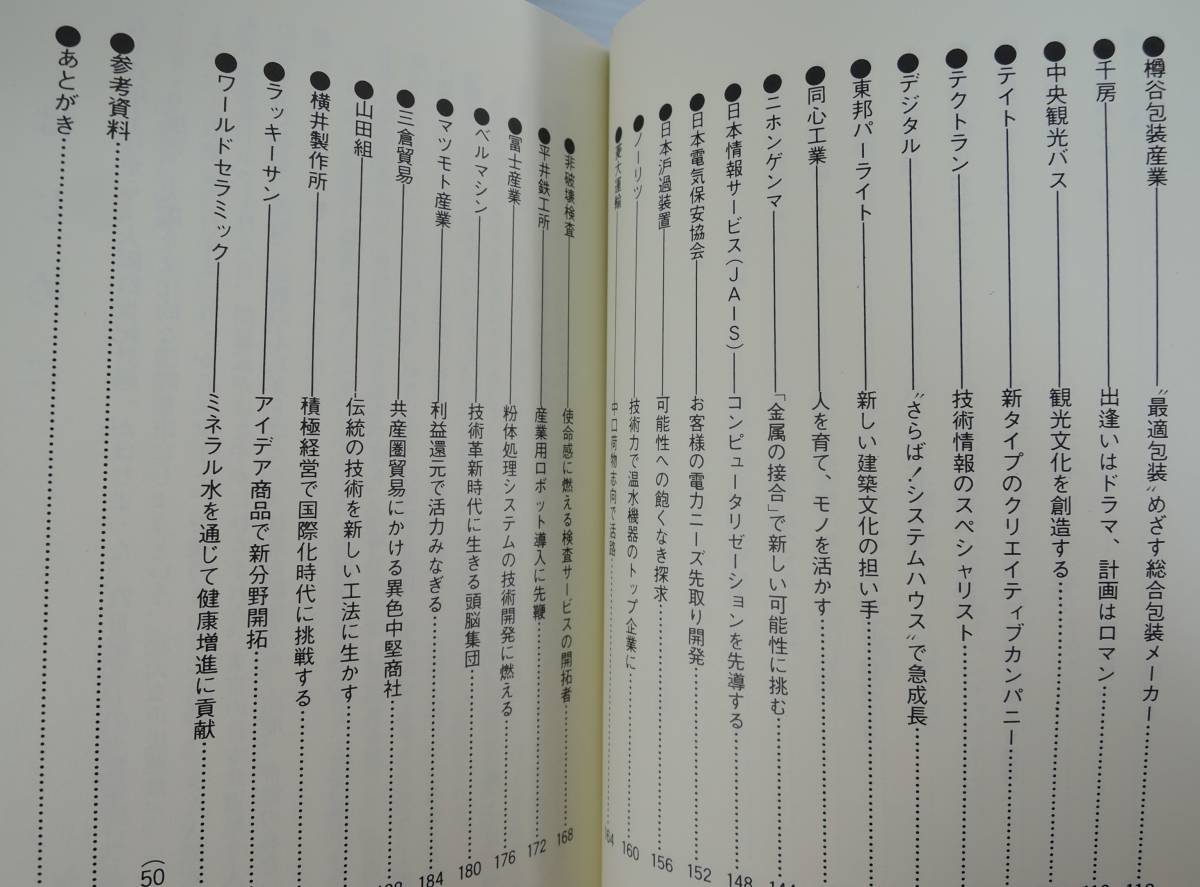 ●樽谷包装産業――"最適包装"めざす総合包装メーカー……
●千房――出逢いはドラマ、計画はロマン……
●中央観光バス――観光文化を創造する……
●テイト――新タイプのクリエイティブカンパニー……
●テクトラン――技術情報のスペシャリスト……
●デジタル――"さらば!システムハウス"で急成長……
●東邦パーライト――新しい建築文化の担い手……
●同心工業――人を育て、モノを活かす……
●ニホンゲンマ――「金属の接合」で新しい可能性に挑む……
●日本情報サービス(JAIS)――コンピュータリゼーションを先導する……148
●日本電気保安協会――お客様の電力ニーズ先取り開発……152
●日本沪過装置――可能性への飽くなき探求……156
●ノーリツ――技術力で温水機器のトップ企業に……160
●大運輸――中口荷物志向で活路……164
●非破壊検査――使命感に燃える検査サービスの開拓者……168
●平井鉄工所――産業用ロボット導入に先鞭……172
●冨士産業――粉体処理システムの技術開発に燃える……176
●ベルマシン――技術革新時代に生きる頭脳集団……180
●マツモト産業――利益還元で活力みなぎる……184
●三倉貿易――共産圏貿易にかける異色中堅商社……
●山田組――伝統の技術を新しい工法に生かす……
●横井製作所――積極経営で国際化時代に挑戦する……
●ラッキーサン――アイデア商品で新分野開拓……
●ワールドセラミック――ミネラル水を通じて健康増進に貢献……
(50
●参考資料……
●あとがき……